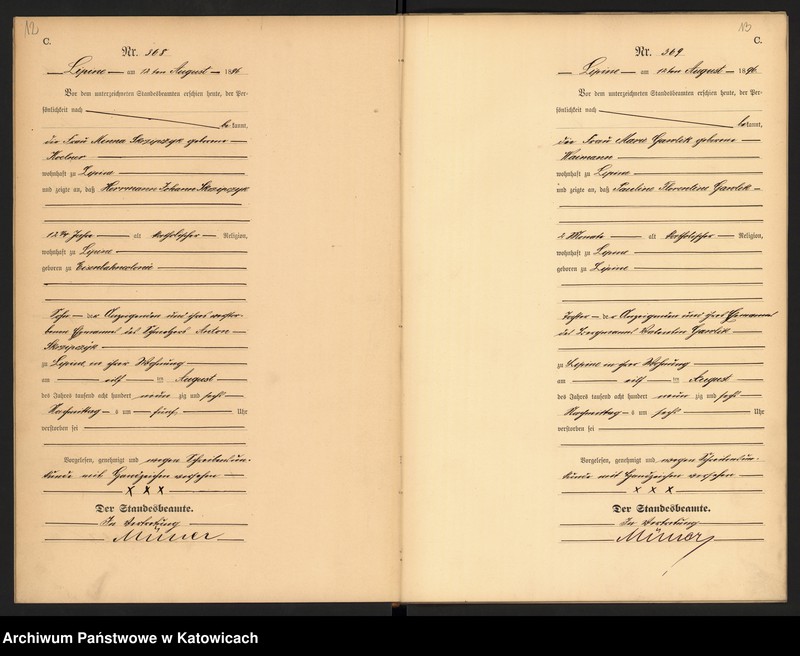 12
C.
Nr. 368
Lipine am 12ten August 1896
Vor dem unterzeichneten Standesbeamten erschien heute, der Per-
sönlichkeit nach
bekannt,
die Frau Minna Skrzipczyk geborene
wohnhaft zu Lipine
und zeigte an, daß Herrmann Johann Skrzipczyk
Jahre alt katholischer Religion,
wohnhaft zu Lipine
geboren zu Eisenbahnkolonie
Sohn der Anzeigenden und ihres verstor-
benen Ehemannes des Anton
Skrzipczyk
zu Lipine in ihrer Wohnung
am elf ten August
des Jahres tausend acht hundert neun zig und sechs
Nachmittag s um fünf Uhr
verstorben sei
Vorgelesen, genehmigt und wegen Schreibensun-
kunde mit Handzeichen versehen
X X X
Der Standesbeamte.
In Vertretung
13
C.
Nr. 369
Lipine am 12ten August 1896
Vor dem unterzeichneten Standesbeamten erschien heute, der Per-
sönlichkeit nach
bekannt,
die Frau Marie Gawlik geborene
wohnhaft zu Lipine
und zeigte an, daß Pauline Florentine Gawlik
Monate alt katholischer Religion,
wohnhaft zu Lipine
geboren zu Lipine
Tochter der Anzeigenden und ihres Ehemannes
des Bergmanns Valentin Gawlik
zu Lipine in ihrer Wohnung
am elf ten August
des Jahres tausend acht hundert neun zig und sechs
Nachmittag s um sechs Uhr
verstorben sei
Vorgelesen, genehmigt und wegen Schreibensun-
kunde mit Handzeichen versehen
x x x
Der Standesbeamte.
In Vertretung
Archiwum Państwowe w Katowicach